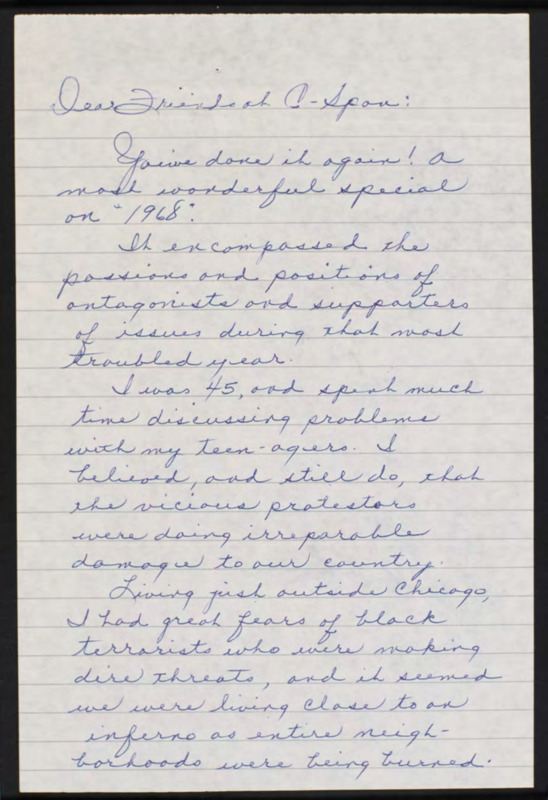 Dear Friends at C-Span:
You've done it again! A
most wonderful special
on "1968".
It encompassed the
passions and positions of
antagonists and supporters
of issues during that most
troubled year.
I was 45, and spent much
time discussing problems
with my teen-agers. I
believed, and still do, that
the vicious protestors
were doing irreparable
damage to our country.
Living just outside Chicago,
I had great fears of black
terrorists who were making
dire threats, and it seemed
we were living close to an
inferno as entire neigh-
borhoods were being burned.